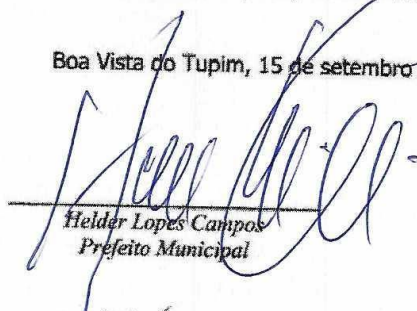 Boa Vista do Tupim, 15 de setembro
Helder Lopes Campos
Prefeito Municipal